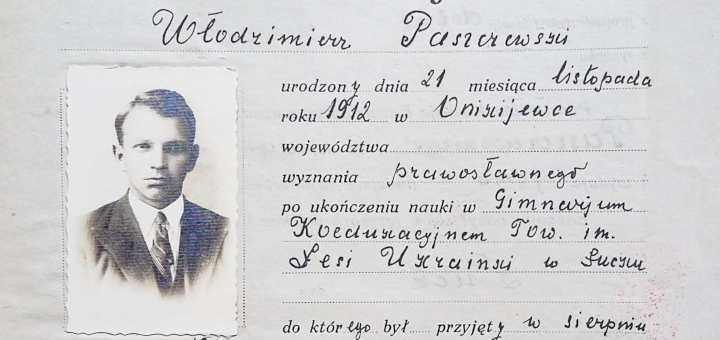 Włodzimierz Paszczewski
urodzony dnia 21 miesiąca listopada
roku 1912 w Oniskijewce
województwa
wyznania prawosławnego
po ukończeniu nauki w Gimnazjum
Koedukacyjnem Tow. im.
Lesi Ukrainki w Łucku
do którego był przyjęty w sierpniu